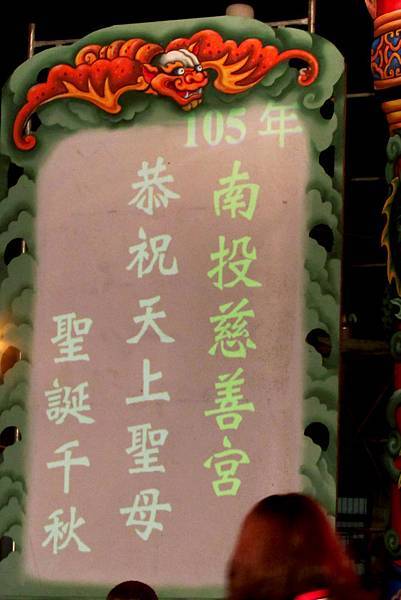 105年
南投慈善宮
恭祝天上聖母
聖誕千秋